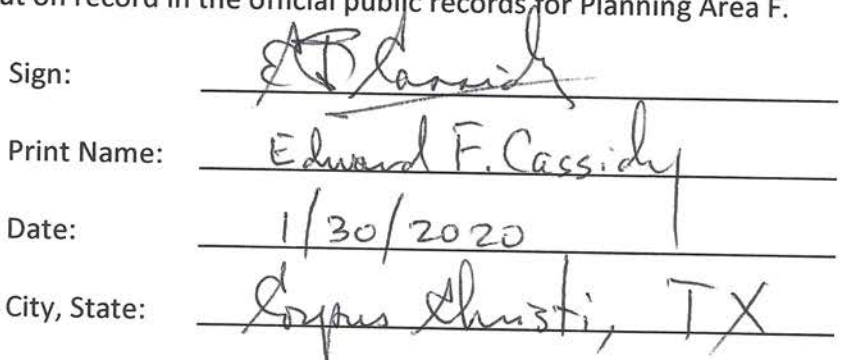 ut on record in the official public records for Planning Area F.
Sign: EF Cassidy
Print Name: Edward F. Cassidy
Date: 1/30/2020
City, State: Corpus Christi, TX